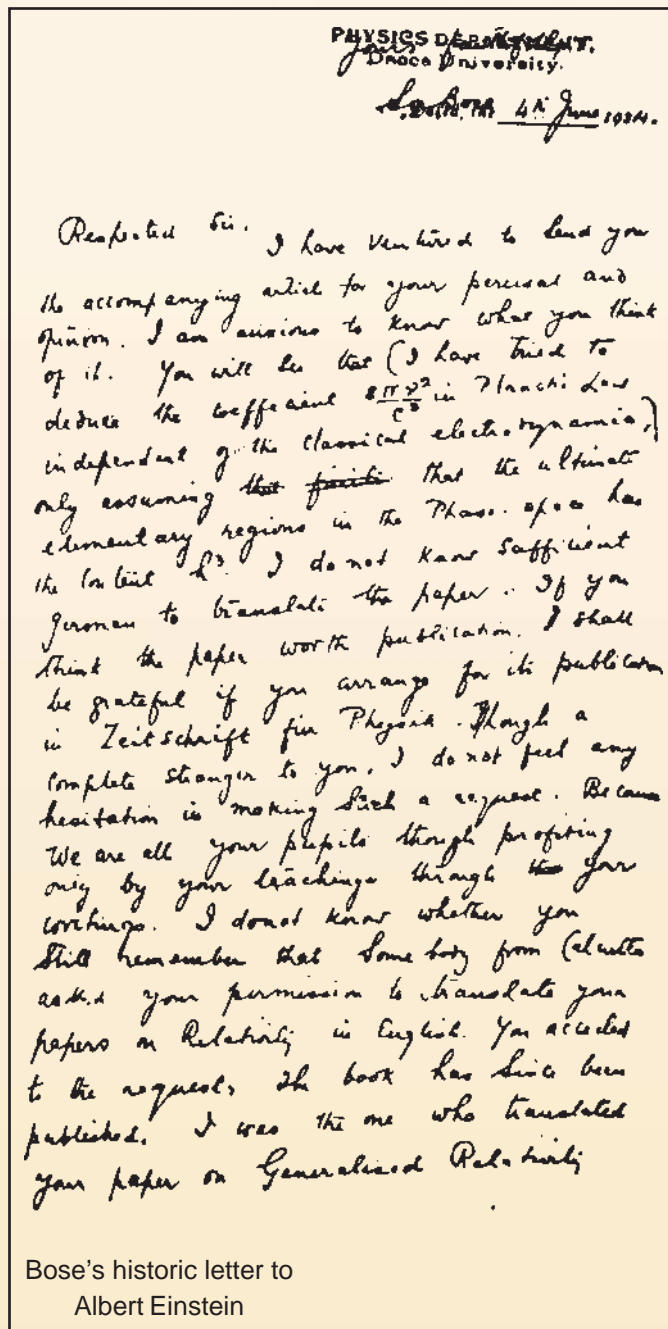 PHYSICS DEPARTMENT.
Yours faithfully
Dacca University.
S. N. Bose
Dacca, The 4th June 1924.
Respected Sir. I have ventured to send you
the accompanying article for your perusal and
opinion. I am anxious to know what you think
of it. You will see that (I have tried to
deduce the coefficient 8πν²/c³ in Planck's Law
independent of the classical electrodynamics,)
only assuming that the ultimate
elementary regions in the Phase-space has
the content h³. I do not know sufficient
german to translate the paper. If you
think the paper worth publication. I shall
be grateful if you arrange for its publication
in Zeitschrift für Physik. Though a
complete stranger to you, I do not feel any
hesitation in making such a request. Because
We are all your pupils though profiting
only by your teachings through your
writings. I donot know whether you
still remember that somebody from Calcutta
asked your permission to translate your
papers on Relativity in English. You acceded
to the request, The book has since been
published. I was the one who translated
your paper on Generalised Relativity
Bose's historic letter to
Albert Einstein